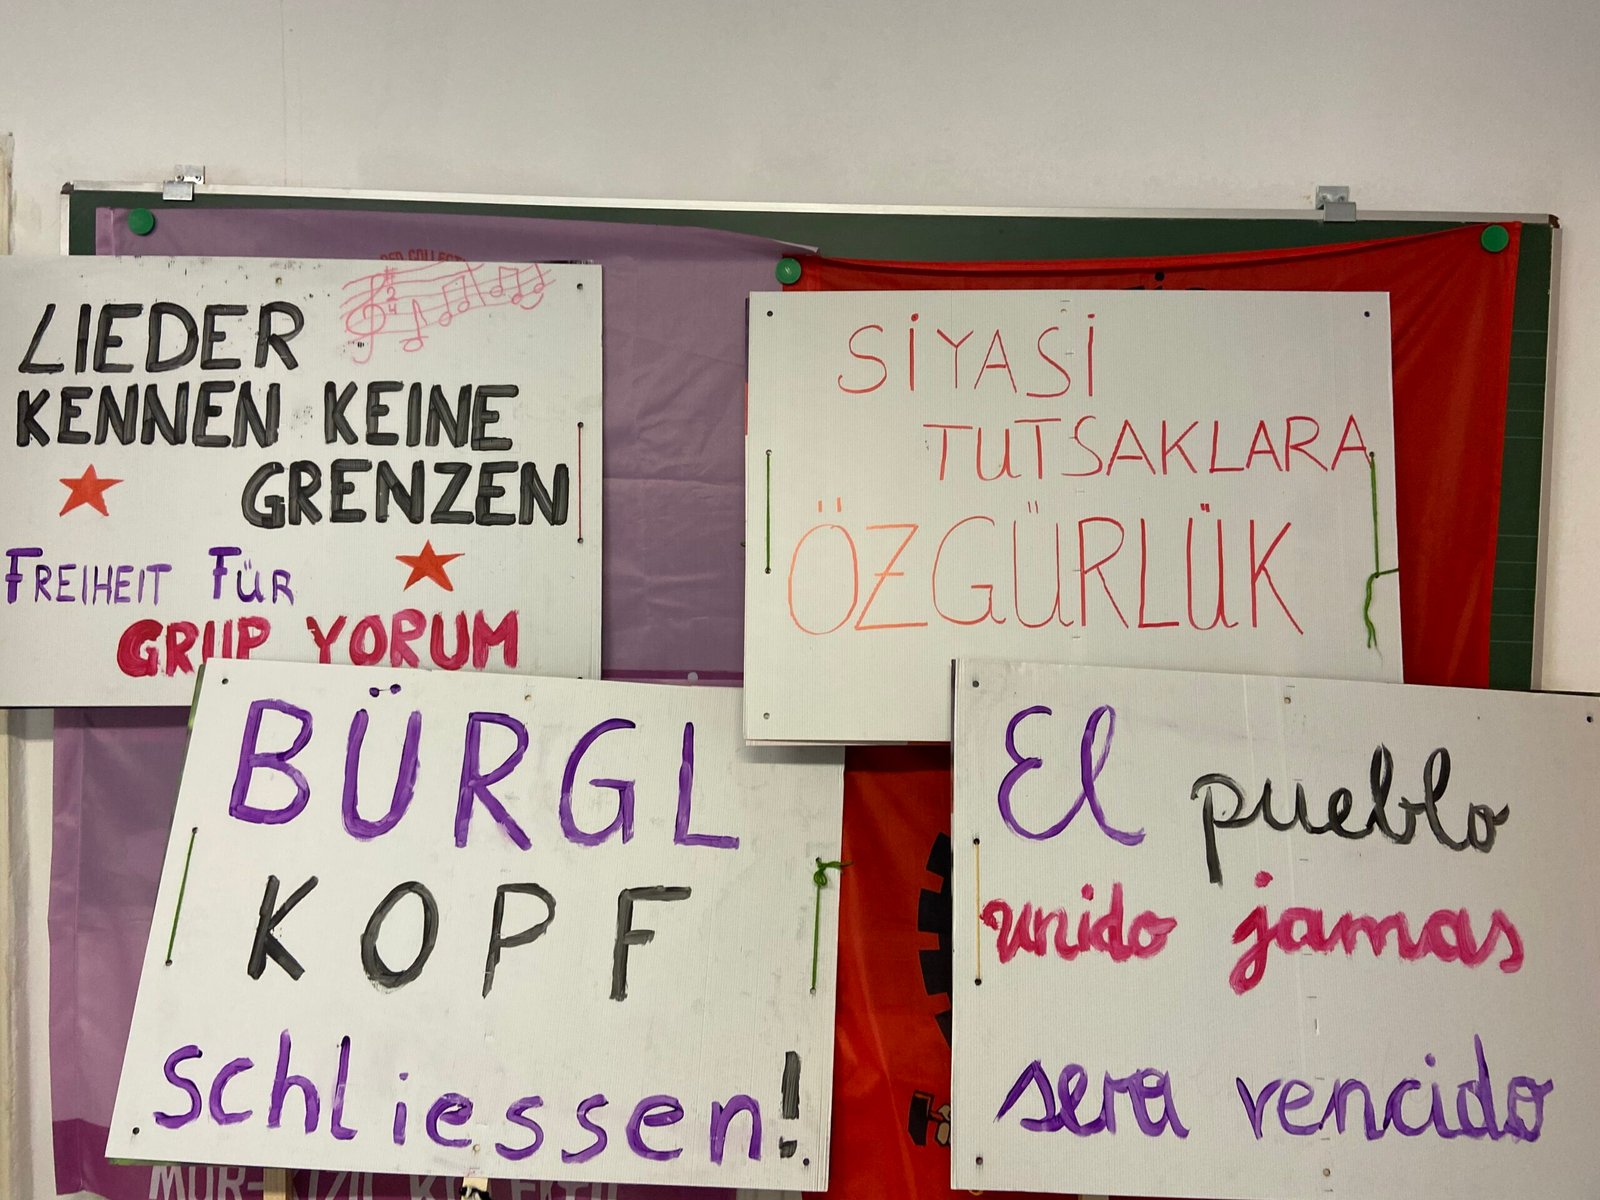 RED COLLECT
LIEDER
KENNEN KEINE
GRENZEN
FREIHEIT FÜR
GRUP YORUM
SİYASİ
TUTSAKLARA
ÖZGÜRLÜK
BÜRGL
KOPF
schliessen!
El pueblo
unido jamas
sera vencido
MOR-KIZIL KOLEKTİF